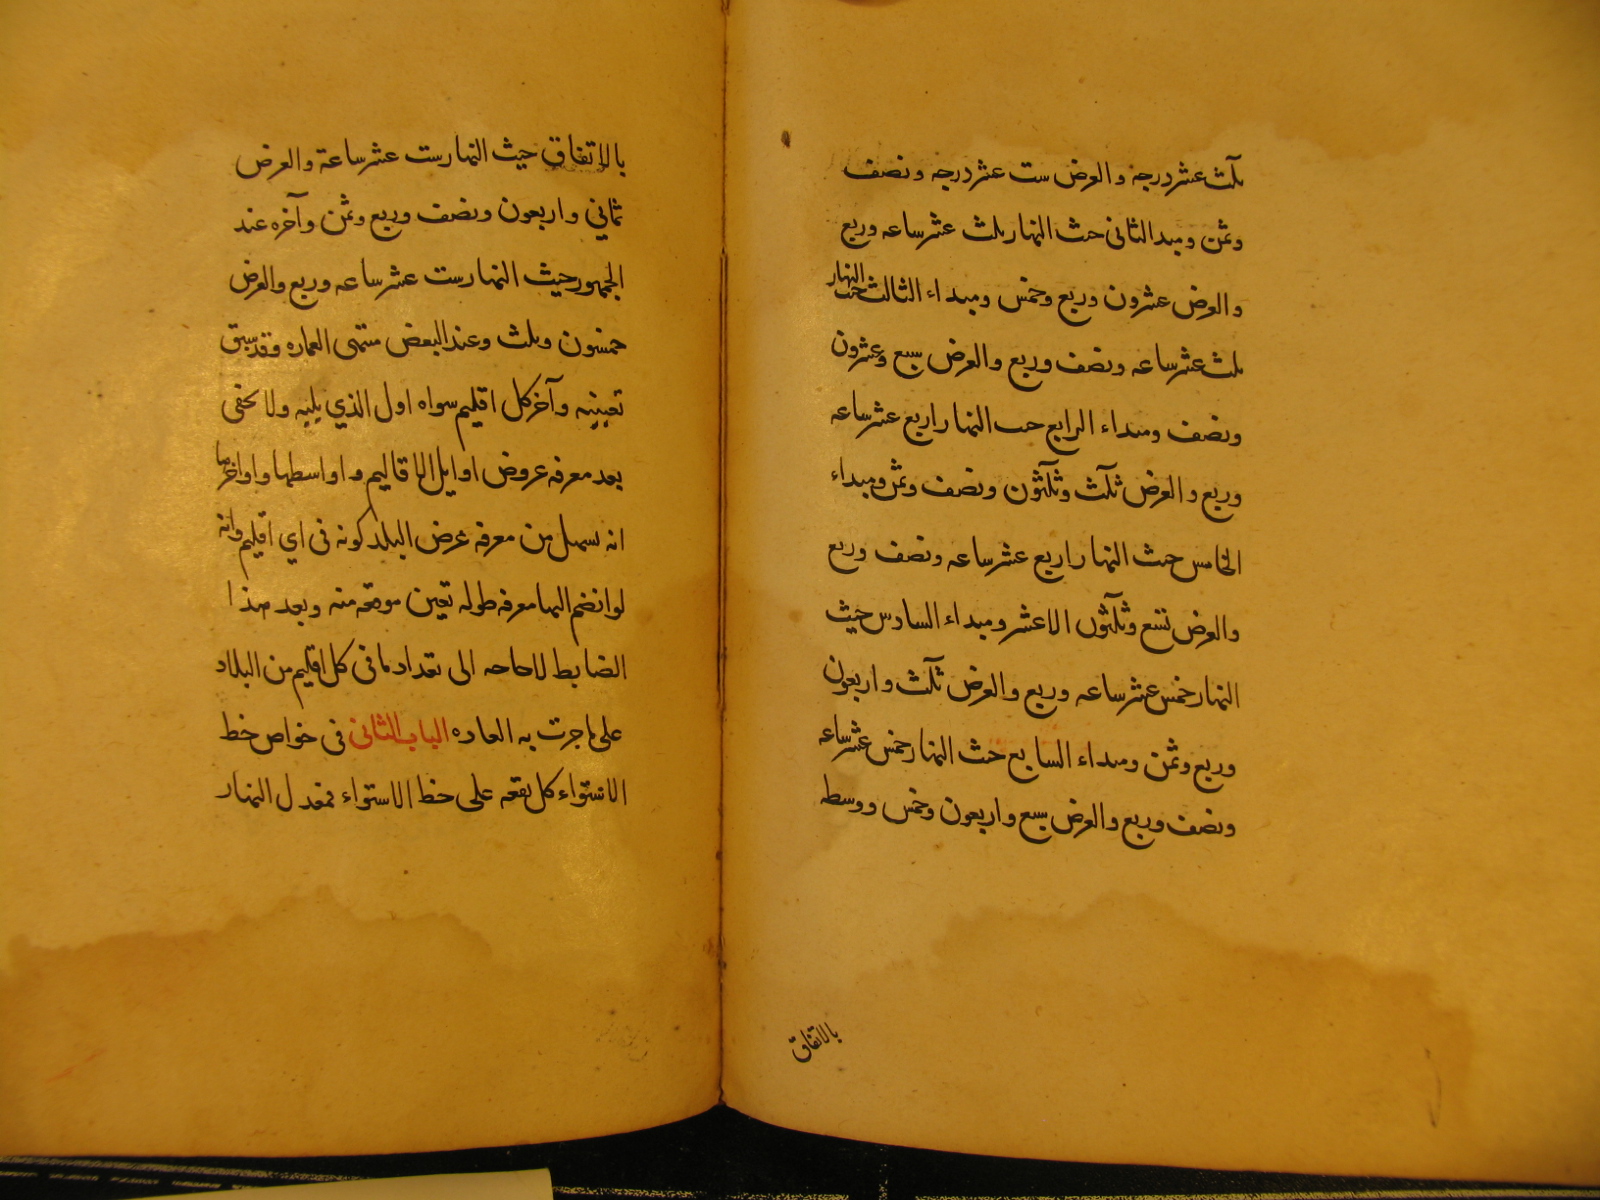 ثلث عشر درجه والعرض ست عشر درجه ونصف
وثمن ومبدا الثانى حيث النهار ثلث عشر ساعه وربع
والعرض عشرون وربع وخمس ومبداء الثالث حيث النهار
ثلث عشر ساعه ونصف وربع والعرض سبع وعشرون
ونصف ومبداء الرابع حيث النهار اربع عشر ساعه
وربع والعرض ثلث وثلثون ونصف وثمن ومبداء
الخامس حيث النهار اربع عشر ساعه ونصف وربع
والعرض تسع وثلثون الا عشر ومبداء السادس حيث
النهار خمس عشر ساعه وربع والعرض ثلث واربعون
وربع وثمن ومبداء السابع حيث النهار خمس عشر ساعه
ونصف وربع والعرض سبع واربعون وخمس ووسطه
بالاتفاق
بالاتفاق حيث النهار ست عشر ساعة والعرض
ثماني واربعون ونصف وربع وثمن وآخره عند
الجمهور حيث النهار ست عشر ساعه وربع والعرض
خمسون وثلث وعند البعض منتهى العماره وقد سبق
تعيينه وآخر كل اقليم سواه اول الذي يليه ولا يخفى
بعد معرفه عروض اوايل الاقاليم واواسطها واواخرها
انه يسهل من معرفه عرض البلد كونه فى اي اقليم وانه
لو انضم اليها معرفه طوله تعين موقعه منه وبعد هذا
الضابط لا حاجه الى تعداد ما فى كل اقليم من البلاد
على ما جرت به العاده الباب الثانى فى خواص خط
الاستواء كل بقعه على خط الاستواء فمعدل النهار